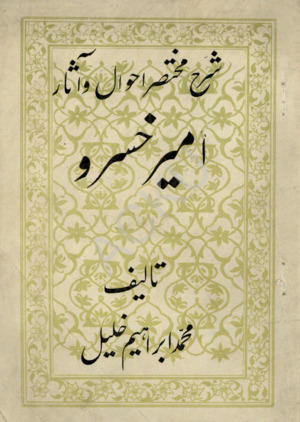 شرح مختصر احوال و آثار
امیر خسرو
تالیف
محمد ابراهیم خلیل